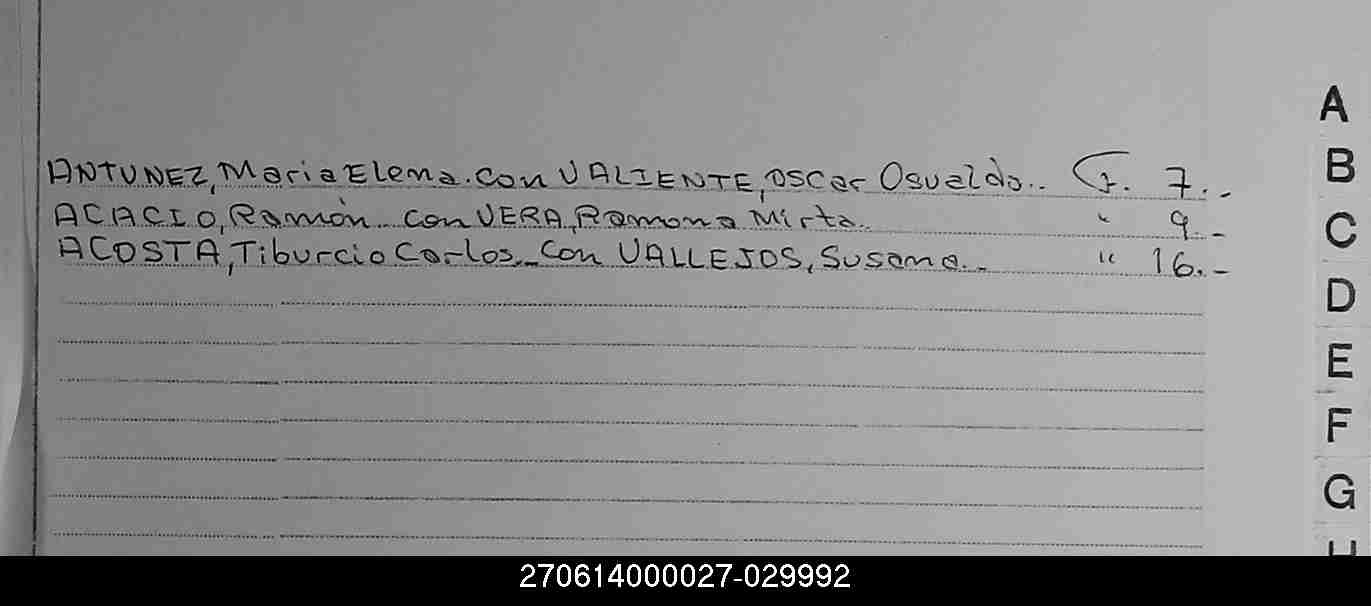 A
ANTUNEZ, Maria Elena. con VALIENTE, Oscar Osvaldo.. F. 7.-
B
ACACIO, Ramón con VERA, Ramona Mirta.. " 9.-
C
ACOSTA, Tiburcio Carlos.- con VALLEJOS, Susana.- " 16.-
D
E
F
G
270614000027-029992